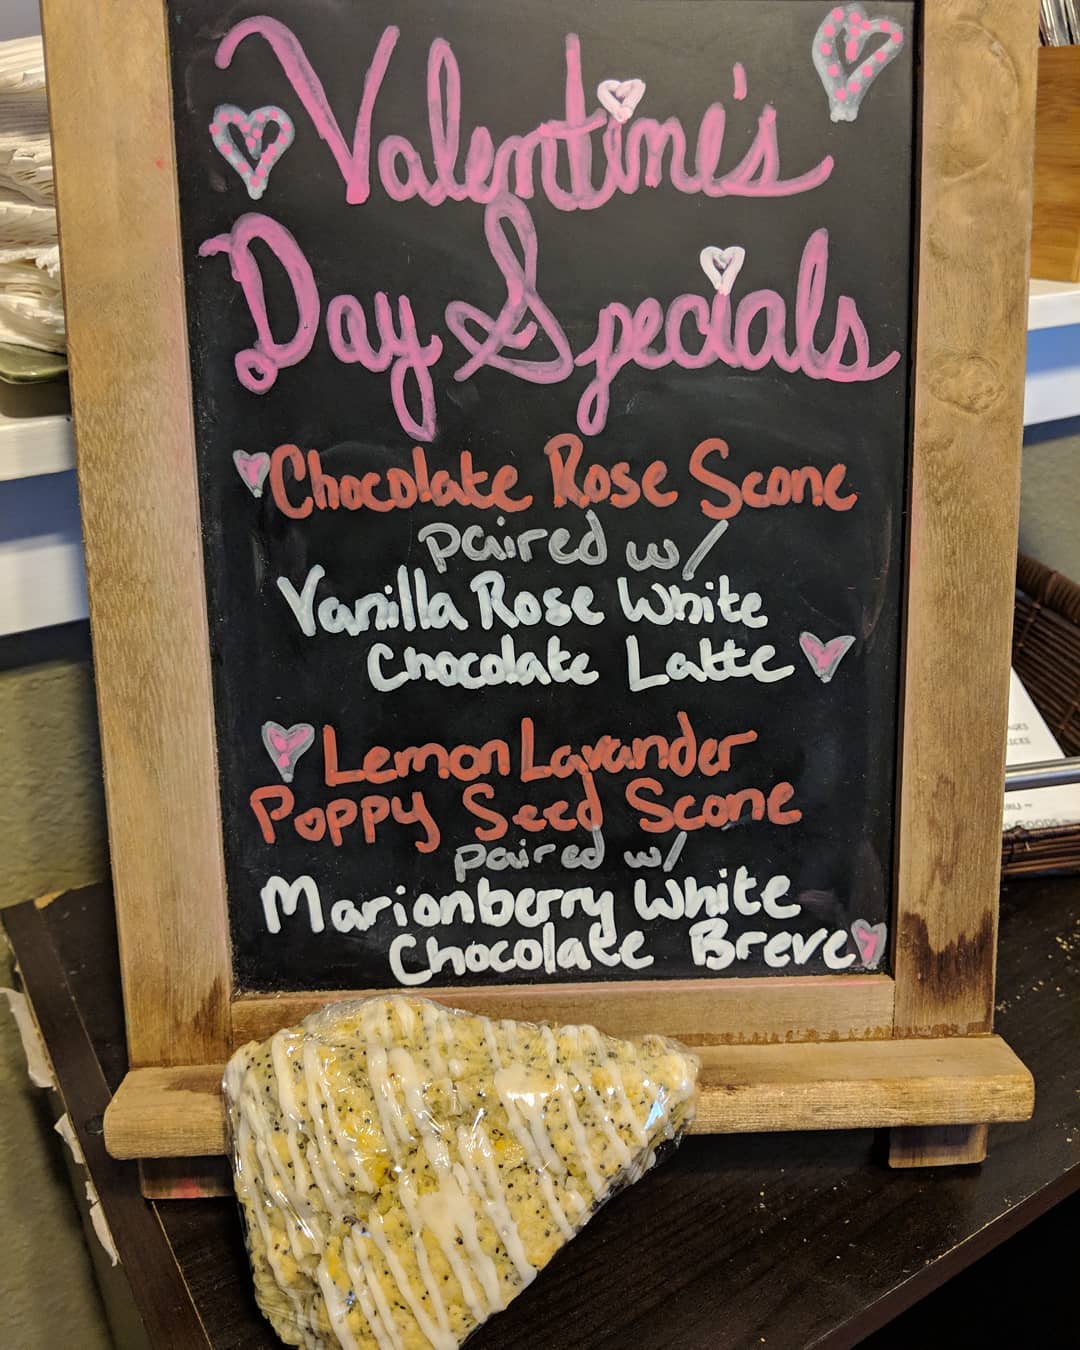 Valentine's
Day Specials
Chocolate Rose Scone
paired w/
Vanilla Rose White
Chocolate Latte
Lemon Lavander
Poppy Seed Scone
paired w/
Marionberry White
Chocolate Breve